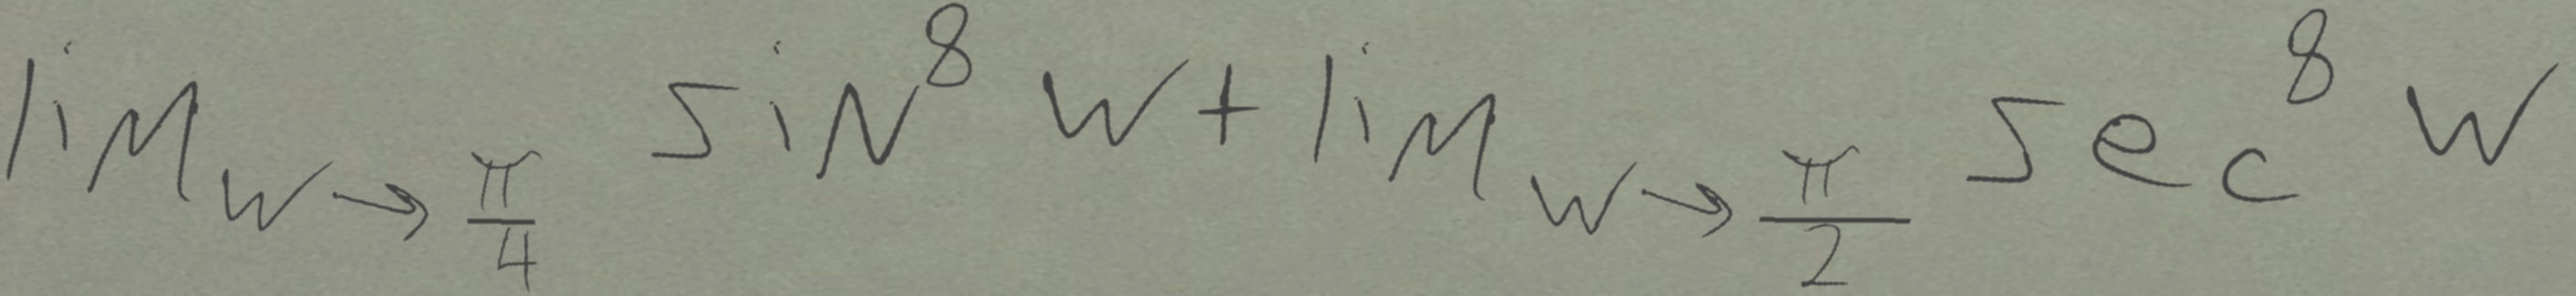 \lim_{w \to \frac{\pi}{4}} \sin^8 w + \lim_{w \to \frac{\pi}{2}} \sec^8 w